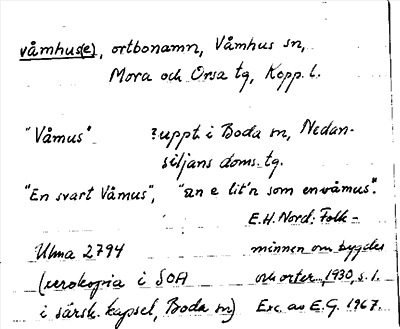 våmhus(e), ortbonamn, Våmhus sn,
Mora och Orsa tg, Kopp. l.
"Våmus" ?uppt. i Boda sn, Nedan-
siljans doms. tg.
"En svart Våmus", "än e lit'n som en våmus".
E.H. Nord: Folk-
Ulma 2794 minnen om bygder
(xerokopia i SOA och orter, 1930, s. 1.
i särsk. kapsel, Boda sn) Exc. av E.G. 1967.